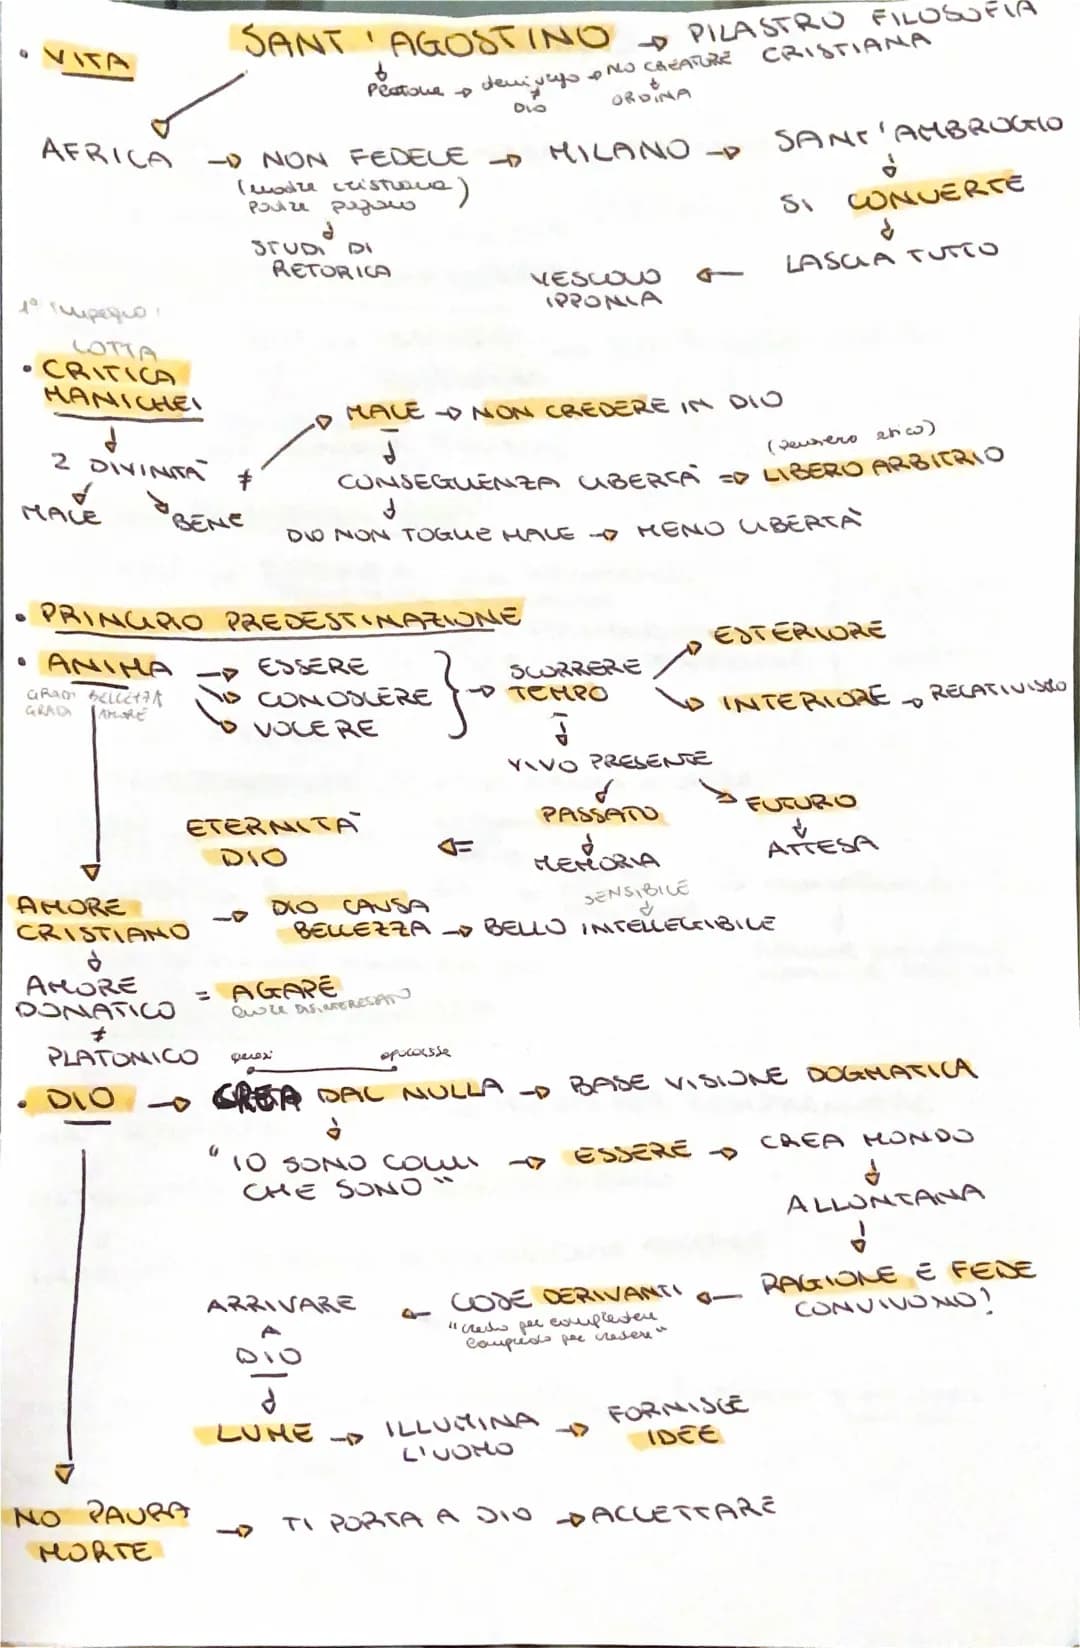 • VITA
SANT'AGOSTINO → PILASTRO FILOSOFIA
CRISTIANA
Platone → demiurgo → NO CREATURE
≠
DIO
ORDINA
AFRICA → NON FEDELE → MILANO → SANT'AMBROGIO
(madre cristiana)
padre pagano
SI CONVERTE
STUDI DI
RETORICA
LASCIA TUTTO
VESCOVO ←
IPPONIA
1° impegno:
LOTTA
• CRITICA
MANICHEI
MALE → NON CREDERE IN DIO
(pensiero etico)
2 DIVINITÀ ≠
CONSEGUENZA LIBERTÀ ⇒ LIBERO ARBITRIO
MALE BENE
DIO NON TOGLIE MALE → MENO LIBERTÀ
• PRINCIPIO PREDESTINAZIONE
• ANIMA → ESSERE
→ CONOSCERE
→ VOLERE
GRADI BELLEZZA
GRADI AMORE
} → SCORRERE
TEMPO
ESTERIORE
INTERIORE → RELATIVISMO
VIVO PRESENTE
PASSATO
FUTURO
MEMORIA
ATTESA
ETERNITÀ ⇐
DIO
AMORE
CRISTIANO → DIO CAUSA
BELLEZZA → BELLO INTELLEGIBILE
SENSIBILE
AMORE
DONATICO = AGAPĒ
≠
PLATONICO
• DIO → CREA DAL NULLA → BASE VISIONE DOGMATICA
"IO SONO COLUI
CHE SONO" → ESSERE → CREA MONDO
ALLONTANA
RAGIONE E FEDE
CONVIVONO!
← COSE DERIVANTI ←
"credo per comprendere
comprendo per credere"
ARRIVARE
A
DIO
LUME → ILLUMINA
L'UOMO → FORNISCE
IDEE
NO PAURA
MORTE → TI PORTA A DIO → ACCETTARE